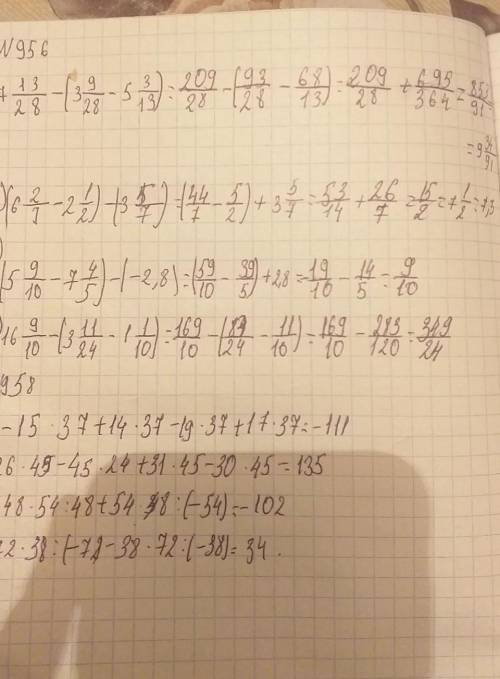 N956
7 13/28 - (3 9/28 - 5 3/13) = 209/28 - (93/28 - 68/13) = 209/28 + 695/364 = 853/91
= 9 34/91
)(6 2/7 - 2 1/2) - (3 5/7) = (44/7 - 5/2) + 3 5/7 = 53/14 + 26/7 = 15/2 = 7 1/2 = 7,5
)
(5 9/10 - 7 4/5) - (-2,8) = (59/10 - 39/5) + 2,8 = 19/10 - 14/5 = 9/10
)16 9/10 - (3 11/24 - 1 1/10) = 169/10 - (83/24 - 11/10) = 169/10 - 283/120 = 349/24
958
-15 · 37 + 14 · 37 - 19 · 37 + 17 · 37 = -111
26 · 45 - 45 · 24 + 31 · 45 - 30 · 45 = 135
48 · 54 : 48 + 54 · 48 : (-54) = -102
72 · 38 : (-72) - 38 · 72 : (-38) = 34 .